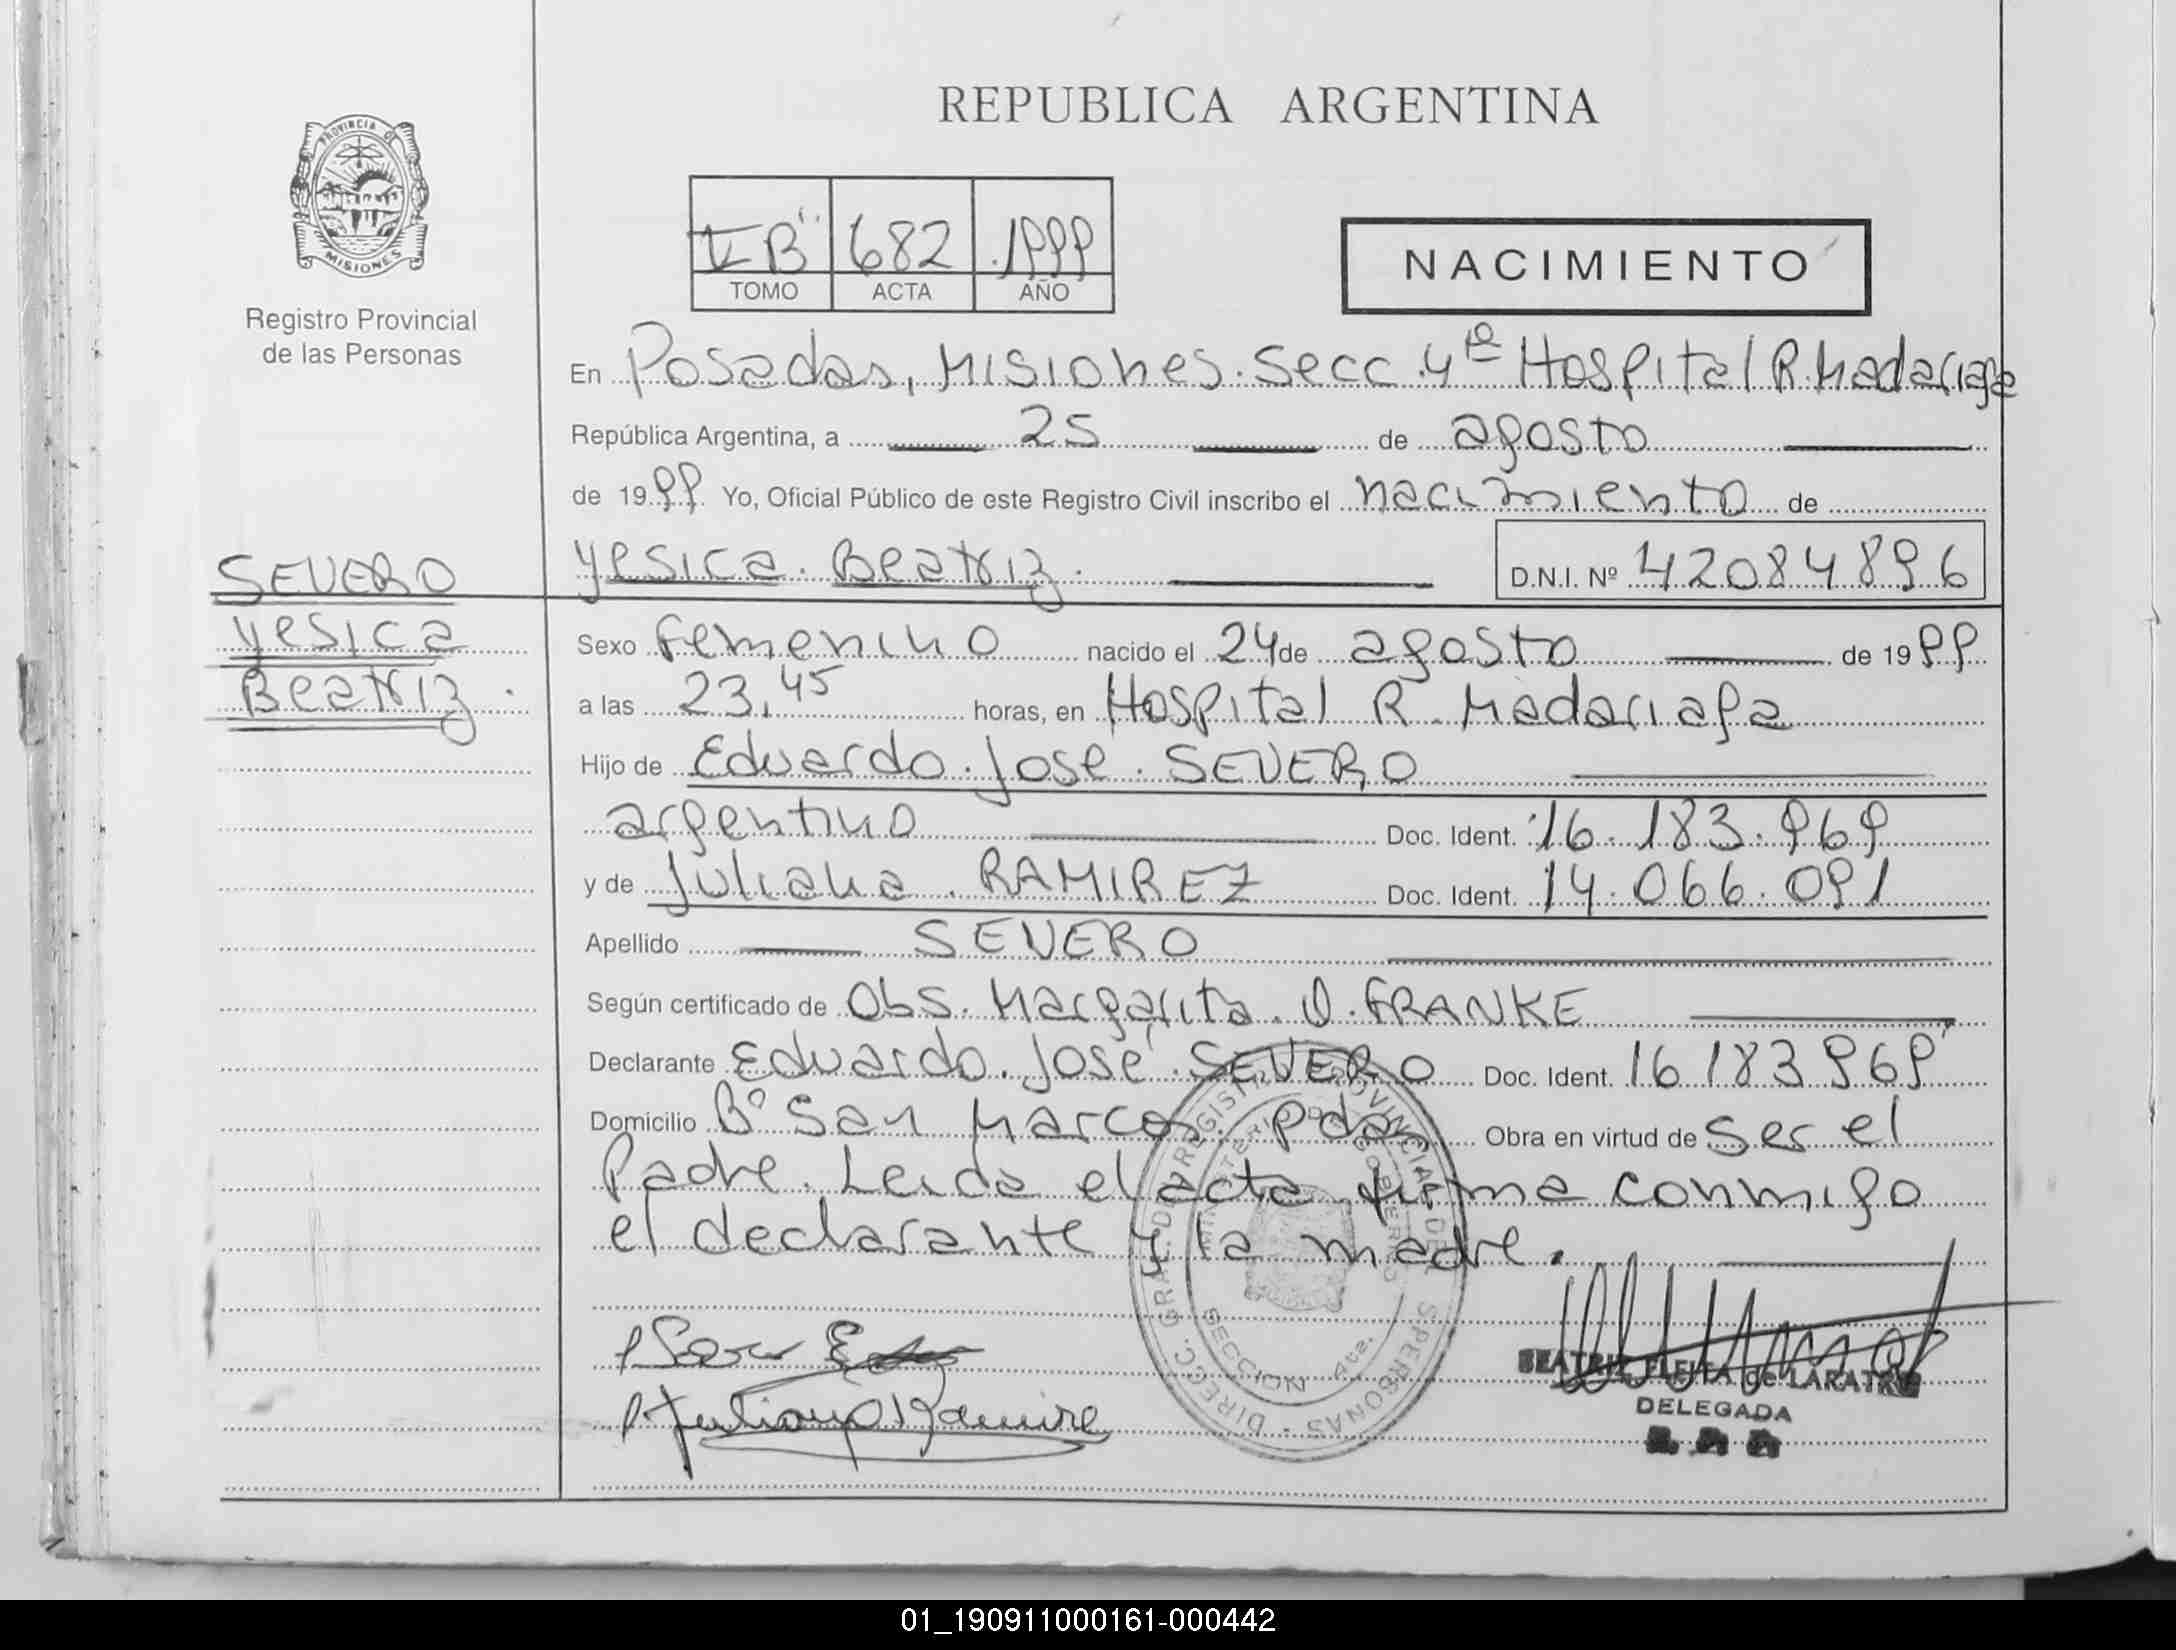 REPUBLICA ARGENTINA
PROVINCIA DE
MISIONES
Registro Provincial
de las Personas
"B" 682 1999
TOMO ACTA AÑO
NACIMIENTO
En Posadas, Misiones. Secc. 4ta Hospital R. Madariaga
República Argentina, a 25 de agosto
de 1999 Yo, Oficial Público de este Registro Civil inscribo el nacimiento de
Yesica Beatriz. D.N.I. Nº 42084896
SEVERO
Yesica
Beatriz.
Sexo Femenino nacido el 24 de agosto de 1999
a las 23,45 horas, en Hospital R. Madariaga
Hijo de Eduardo José SEVERO
argentino Doc. Ident. 16.183.969
y de Juliana RAMIREZ Doc. Ident. 14.066.091
Apellido SEVERO
Según certificado de Obs. Margarita O. FRANKE
Declarante Eduardo José SEVERO Doc. Ident. 16183969
Domicilio Bº San Marcos Pdas Obra en virtud de ser el
Padre. Leída el acta firma conmigo
el declarante y la madre.
Juliana Ramire
BEATRIZ FLEITA de LARATRO
DELEGADA
DIRECC. GRAL. DEL REGISTRO PROVINCIAL DE PERSONAS
MINISTERIO DE GOBIERNO
SECCION 4ta.
01_190911000161-000442